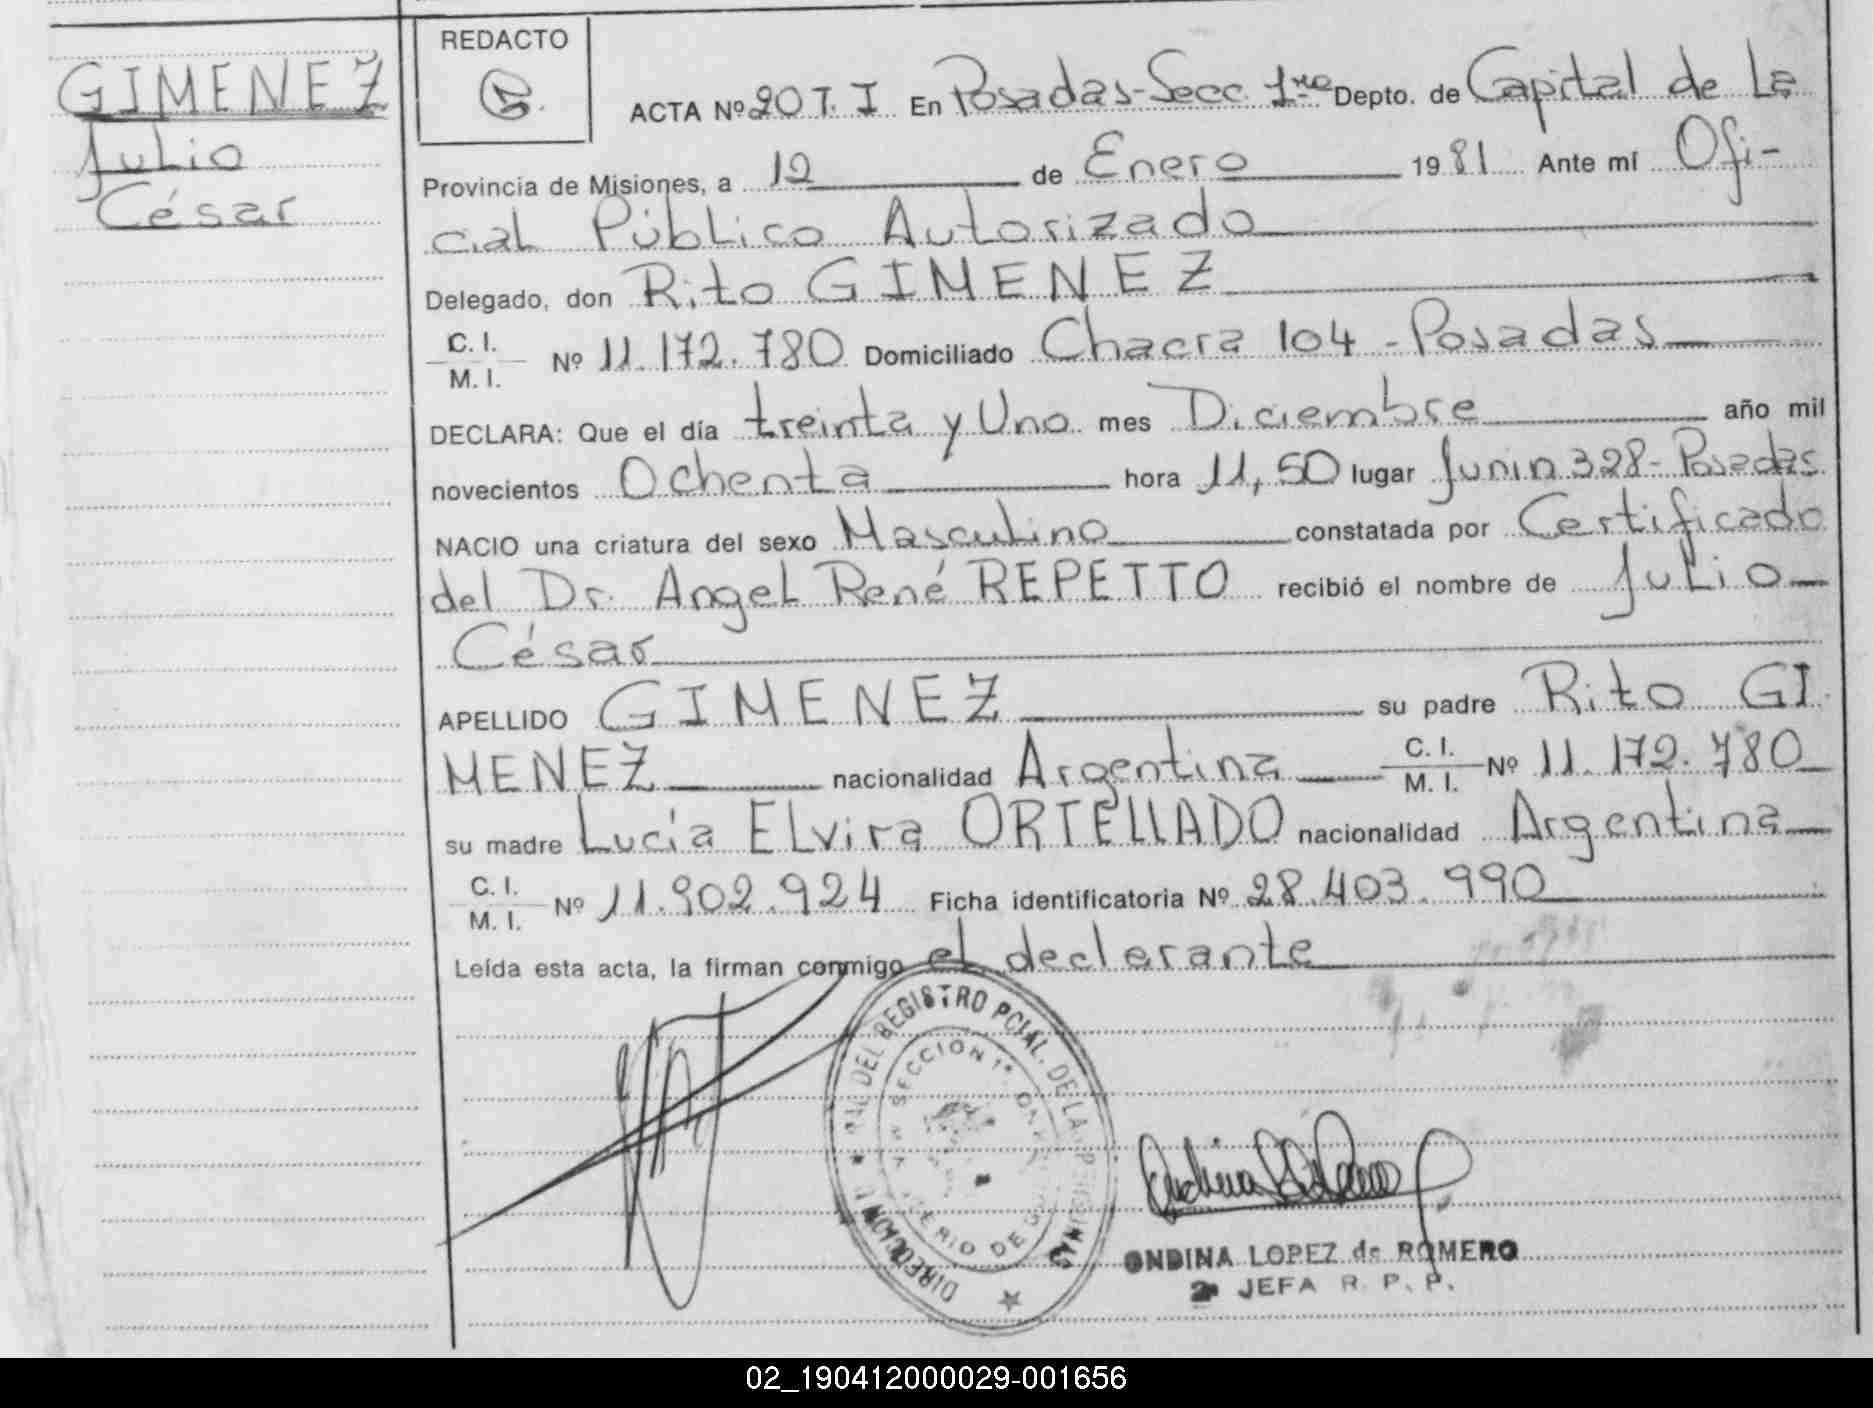 GIMENEZ
Julio
César
REDACTO
ACTA Nº 20 T. I En Posadas-Secc. 1ra Depto. de Capital de La
Provincia de Misiones, a 12 de Enero 1981 Ante mí Ofi-
cial Público Autorizado
Delegado, don Rito GIMENEZ
C. I.
M. I. Nº 11.172.780 Domiciliado Chacra 104 - Posadas
DECLARA: Que el día treinta y Uno mes Diciembre año mil
novecientos Ochenta hora 11,50 lugar Junin 328 - Posadas
NACIO una criatura del sexo Masculino constatada por Certificado
del Dr. Angel René REPETTO recibió el nombre de Julio
César
APELLIDO GIMENEZ su padre Rito GI
MENEZ nacionalidad Argentina C. I.
M. I. Nº 11.172.780
su madre Lucía Elvira ORTELLADO nacionalidad Argentina
C. I.
M. I. Nº 11.902.924 Ficha identificatoria Nº 28.403.990
Leída esta acta, la firman conmigo el declarante
DEL REGISTRO PCIAL. DE LA
SECCION 1ª
DIRECCION
ONDINA LOPEZ de ROMERO
2ª JEFA R. P. P.
02_190412000029-001656